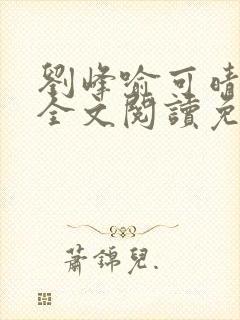 劉峰喻可晴
全文閱讀免
蕭錦兒.